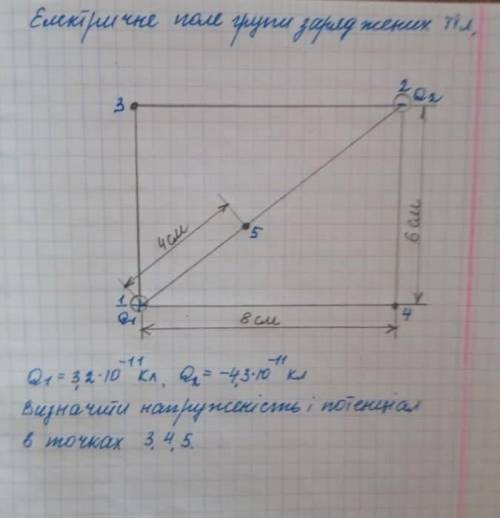 Електричне поле групи заряджених тіл.
2
Q2
3
4см
5
6см
1
Q1
8см
4
Q1 = 3,2·10⁻¹¹ Кл, Q2 = -4,3·10⁻¹¹ кл
Визначити напруженість і потенціал
в точках 3, 4, 5.